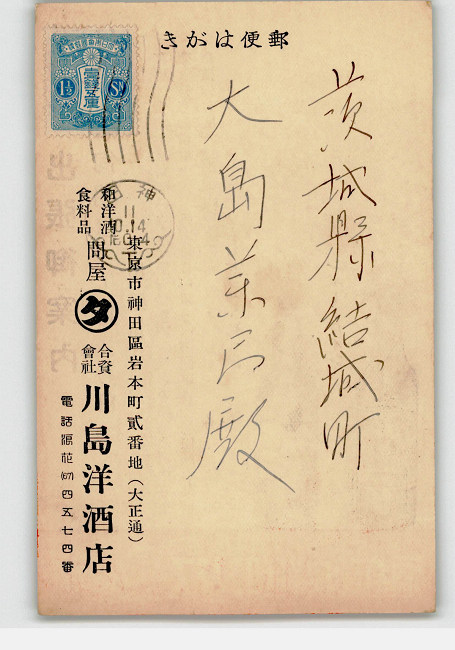 きがは便郵
壹錢五厘
1½ Sn
茨城縣結城町
大島 殿
神田
11
10.14
東京市神田區岩本町貳番地（大正通）
和洋酒
食料品
問屋
タ
合資
會社
川島洋酒店
電話浪花(67)四五七四番
出張御案内